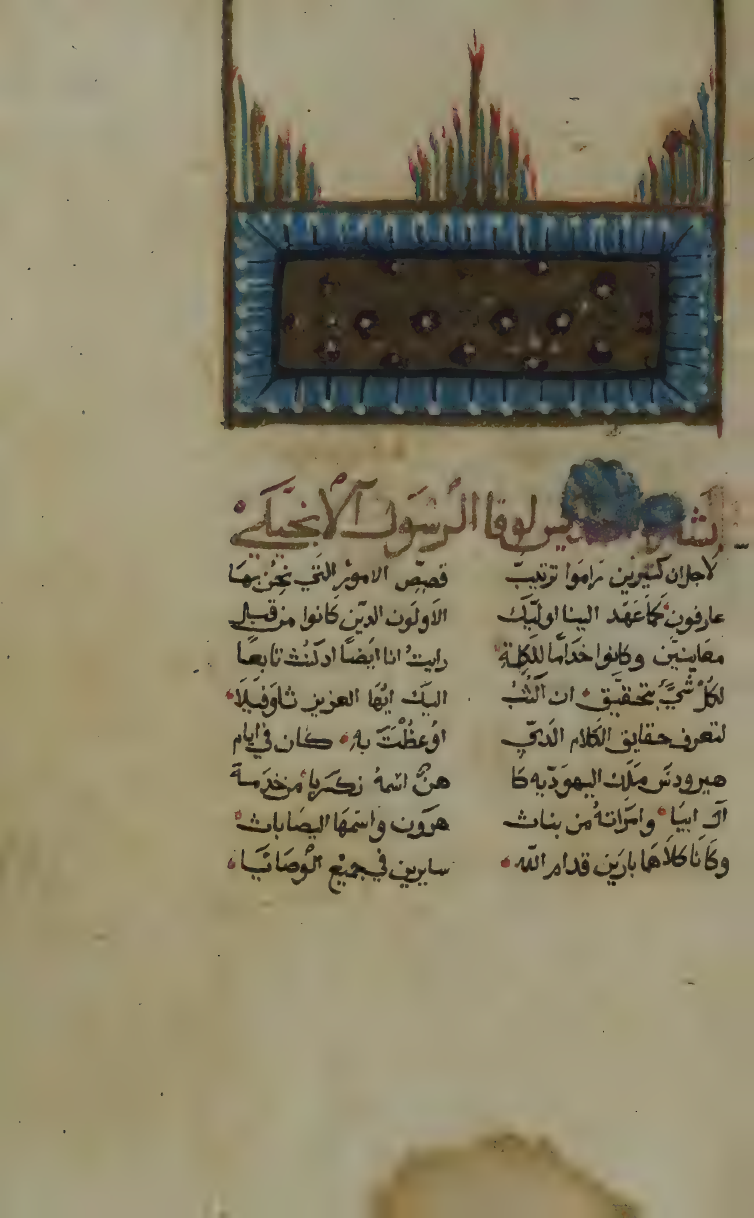 لوقا الرسول الانجيلي
لاجل ان كثيرين راموا ترتيب قصص الامور التي نحن بها
عارفون كما عهد الينا اوليك الاولون الدين كانوا من قبل
معاينين وكانوا خداما للكلمة رايت انا ايضا اد كنت تابعا
لكل شي بتحقيق ان اكتب اليك ايها العزيز ثاوفيلا
لتعرف حقايق الكلام الدي اوعظت به كان في ايام
هيرودس ملك اليهودية كا هن اسمه زكريا من خدمة
ال ابيا وامراته من بنات هرون واسمها اليصابات
وكانا كلاهما بارين قدام الله سايرين في جميع الوصايا